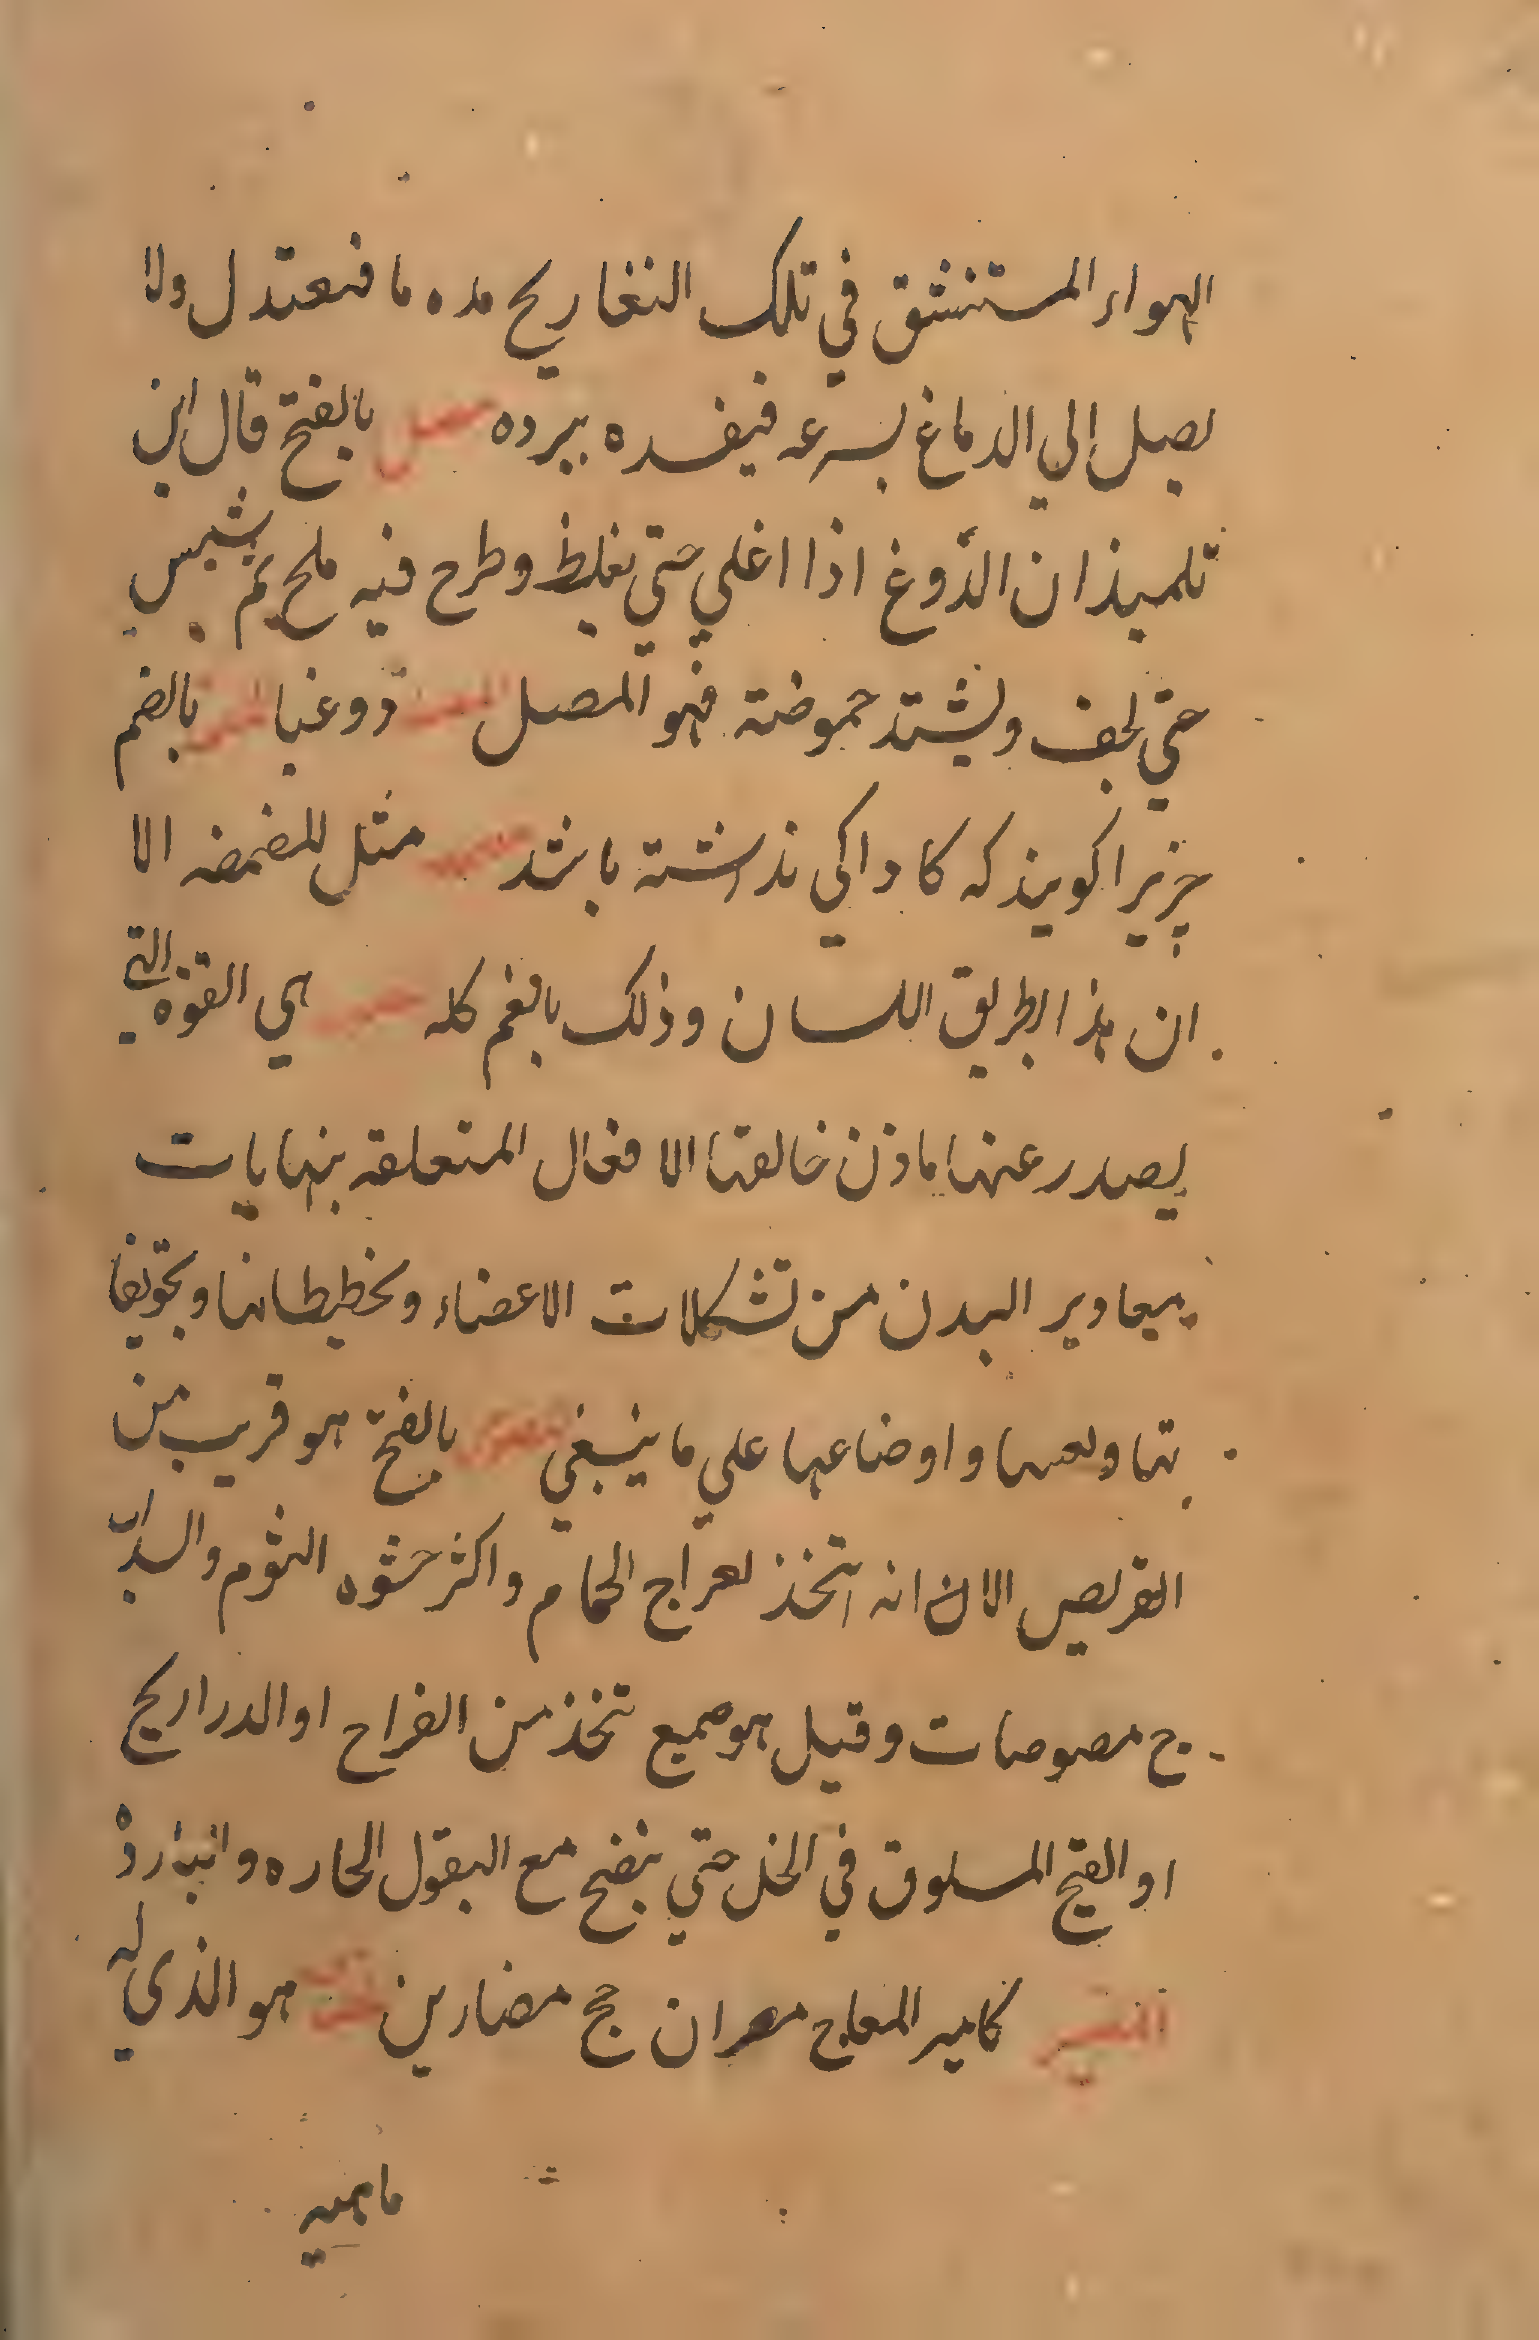 الهواء المستنشق في تلك التغاريج مده ما فتعتدل ولا
يصل الي الدماغ بسرعه فيفسده ببرده مصل بالفتح قال ابن
تلميذ ان الدوغ اذا اغلي حتي يغلظ وطرح فيه ملح ثم شمس
حتي يجف ويشتد حموضته فهو المصل دوغبا بالضم
چيزيرا كويند كه كاواكي نداشته باشد مثل المضمضه الا
ان هذا بطريق اللسان وذلك بالفم كله هي القوة التي
يصدر عنها باذن خالقها الافعال المتعلقه بنهايات
مقادير البدن من تشكلات الاعضاء وتخطيطاتها وتجويفها
واوضاعها علي ما ينبغي بالفتح هو قريب من
القريص الا انه اتخذ لفراخ الحمام واكثر حشوه الثوم والسداب
ج مصوصات وقيل هو يتخذ من الفراخ او الدراريج
او القبج المسلوق في الخل حتي ينضج مع البقول الحاره
المصير كامير المعاج مصران جج مصارين هو الذي له
ماهيه